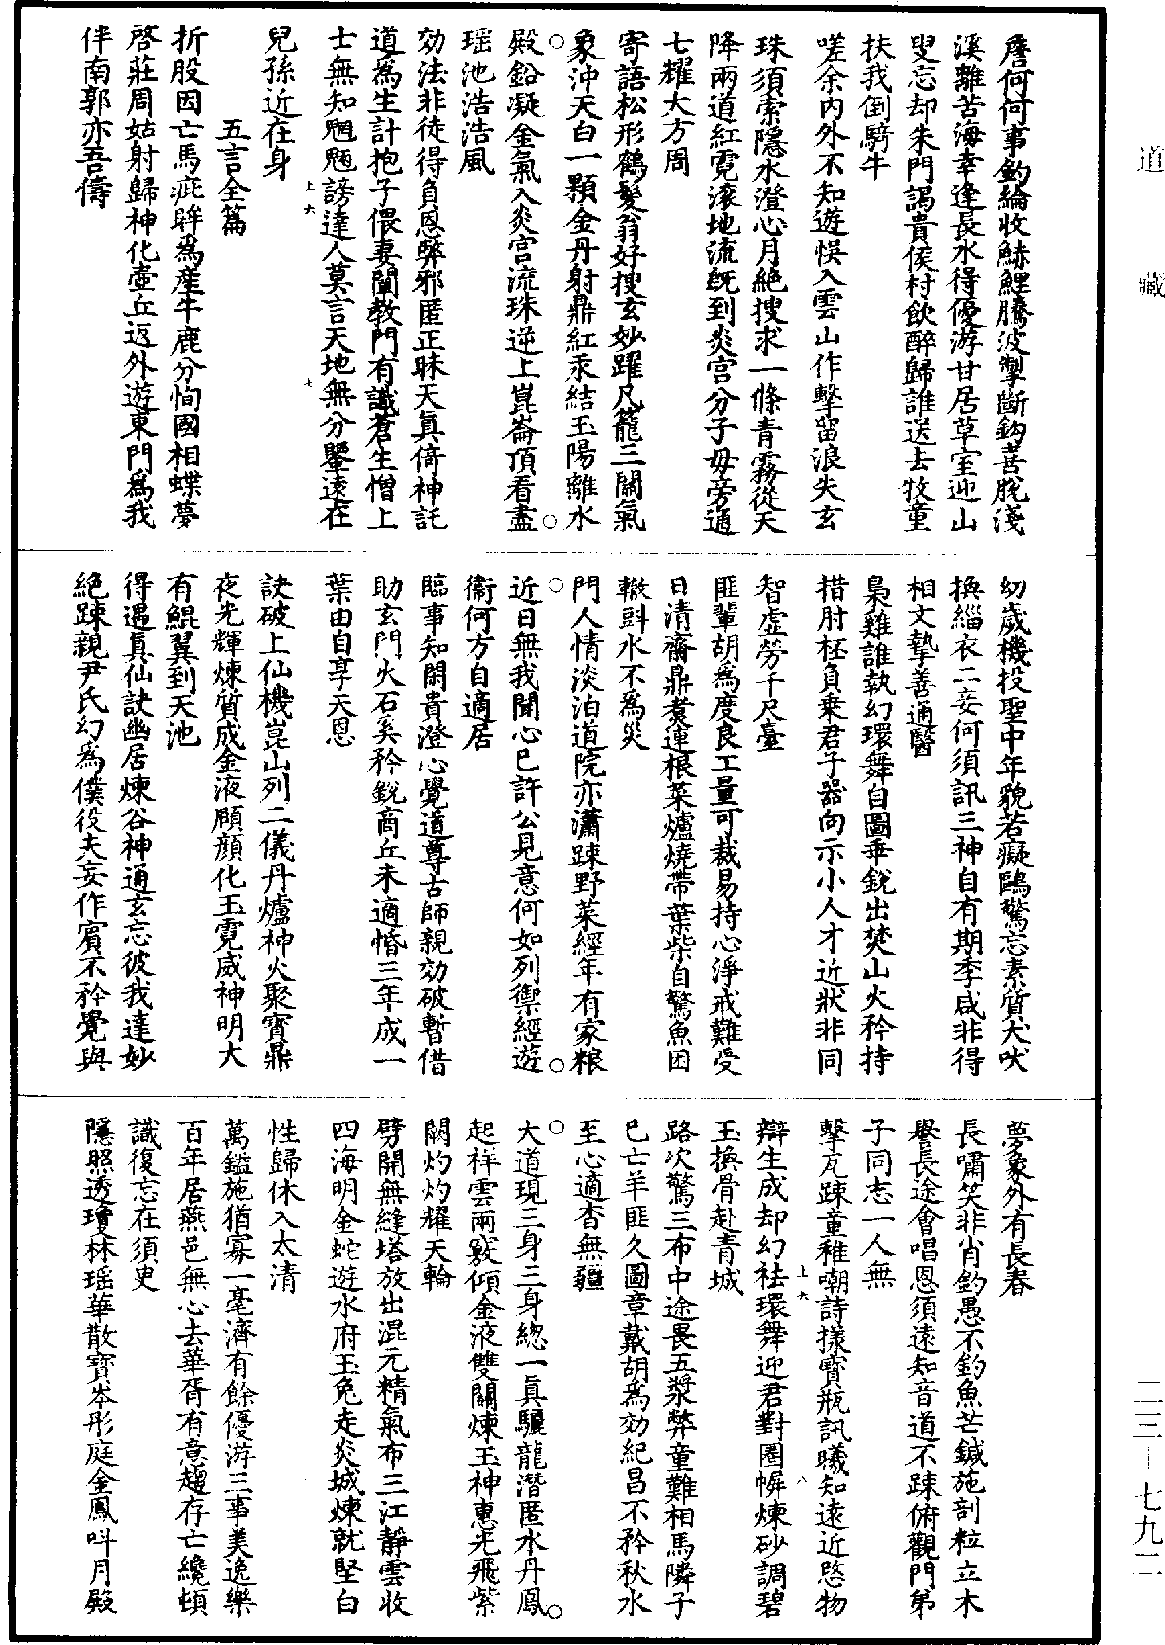 道藏
詹何何事釣綸收鯄鯉騰波掣斷鈎善脫淺
溪離苦海幸逢長水得優游甘居草室迎山
叟忘却朱門謁貴侯村飲醉歸誰送去牧童
扶我倒騎牛
嗟余內外不知遊悞入雲山作擊留浪失玄
珠須索隱水澄心月絕搜求一條青霧從天
降兩道紅霓滾地流旣到炎宮分子母旁通
七耀大方周
寄語松形鶴髮翁好搜玄妙躍凡籠三關氣
象沖天白一顆金丹射鼎紅汞結玉陽離水
殿鉛凝金氣入炎宮流珠逆上崑崙頂看盡
瑶池浩浩風
効法非徒得負恩弊邪匿正昧天眞倚神託
道為生計抱子偎妻闡教門有識蒼生憎上
士無知魍魎謗達人莫言天地無分鑒遠在
兒孫近在身
五言全篇
折股因亡馬疵眸為産牛鹿分恂國相蝶夢
啓莊周姑射歸神化壺丘返外遊東門為我
伴南郭亦吾儔
幼歲機投聖中年貌若癡鷗驚忘素質犬吠
換緇衣二妄何須訊三神自有期李咸非得
相文摯善通醫
梟雞誰執幻環舞自圖乖銳出焚山火矜持
措肘柸負乗君子器向示小人才近狀非同
智虛勞千尺臺
匪輩胡為度良工量可裁易持心淨戒難受
日清齋鼎煮連根菜爐燒帶葉柴自驚魚困
轍㪷水不為災
門人情淡泊道院亦瀟踈野菜經年有家粮
近日無我聞心已許公見意何如列禦經遊
衞何方自適居
臨事知閑貴澄心覺道尊古師親効破暫借
助玄門火石奚矜銳商丘未適惛三年成一
葉由自享天恩
訣破上仙機崑山列二儀丹爐神火聚寶鼎
夜光輝煉質成金液頤顔化玉霓威神明大
有鯤翼到天池
得遇真仙訣幽居煉谷神通玄忘彼我達妙
絕踈親尹氏幻為僕役夫妄作賓不矜覺與
夢象外有長春
長嘯笑非肖釣愚不釣魚芒鍼施剖粒立木
譽長途會唱恩須遠知音道不踈俯觀門弟
子同志一人無
擊瓦踈童稚嘲詩㨾寶瓶訊曦知遠近愍物
辯生成却幻袪環舞迎君對圈幈煉砂調碧
玉換骨赴青城
路次驚三布中途畏五漿弊童難相馬隣子
已亡羊匪久圖章戴胡為効紀昌不矜秋水
至心適杳無疆
大道現三身三身總一眞驪龍潛匿水丹鳳
起祥雲兩竅傾金液雙關煉玉神惠光飛紫
闕灼灼耀天輪
劈開無縫塔放出混元精氣布三江靜雲收
四海明金蛇遊水府玉兔走炎城煉就堅白
性歸休入太清
萬鎰施猶寡一毫濟有餘優游三事美逸樂
百年居燕邑無心去華胥有意趨存亡纔頓
識復忘在須史
隱照透瓊林瑶華散寶岑彤庭金鳳呌月殿
二三—七九二